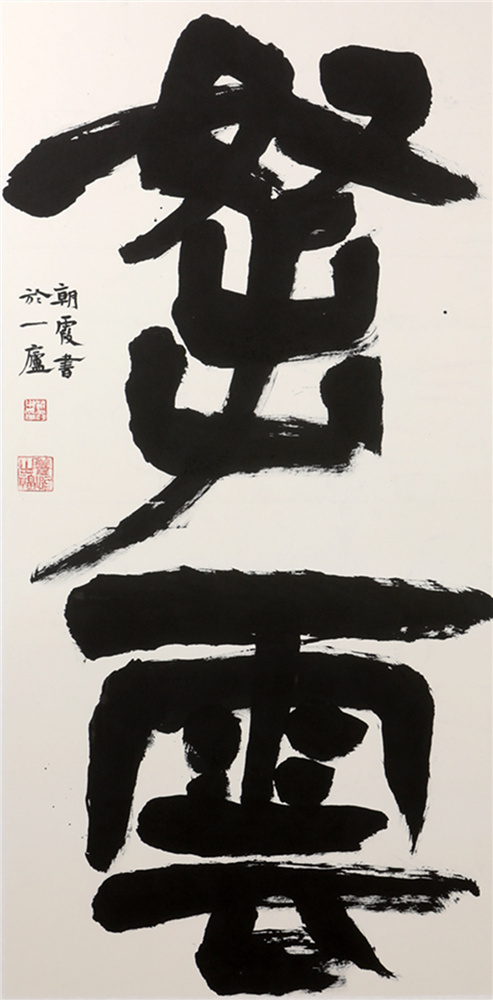 拏雲
朝霞書
於一廬